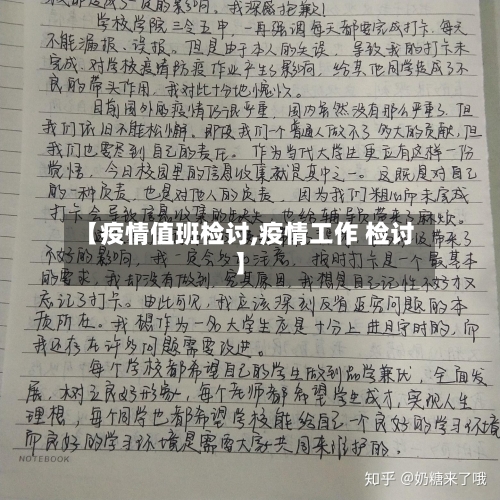 学校学院三令五申，一再强调每天都要完成打卡，每天
不能漏报、误报。但是由于本人的失误，导致我的打卡未
完成，对学校疫情防疫作业产生了影响，给其他同学造成了不
良的带头作用，我对此十分地愧疚。
目前国外的疫情仍很严重，国内虽然没有那么严重了，但
我们依旧不能松懈。即使我们个普通人做不了多大的贡献，但
我们也要尽到自己的责任。作为当代大学生更应有这样一份
觉悟，今日校园里的信息收集就是其中之一。这既是对自己
的一种负责，也是对他人的负责，因为我们粗心而未完成
打卡会导致信息收集的缺失，也给辅导员带来了麻烦。
【疫情值班检讨,疫情工作 检讨
】
不好的影响，我一定会注意。按时打卡是一个最基本
的要求，我却没有做到，究其原因，我想是自己记性不好才又
忘记了打卡。由此可见，我应该深刻反省并究问题的本
质所在。我想作为一名大学生应是十分上进且守时的，而
我还存在许多问题需要改进。
每个学校都希望自己的学生做到品学兼优，全面发
展，树立良好形象，每个老师都希望学生成才，实现人生
理想，每个同学也都希望学校能给自己一个良好的学习环境
而良好的学习环境是需要大家共同来维护的。
NOTEBOOK
知乎 @奶糖来了哦